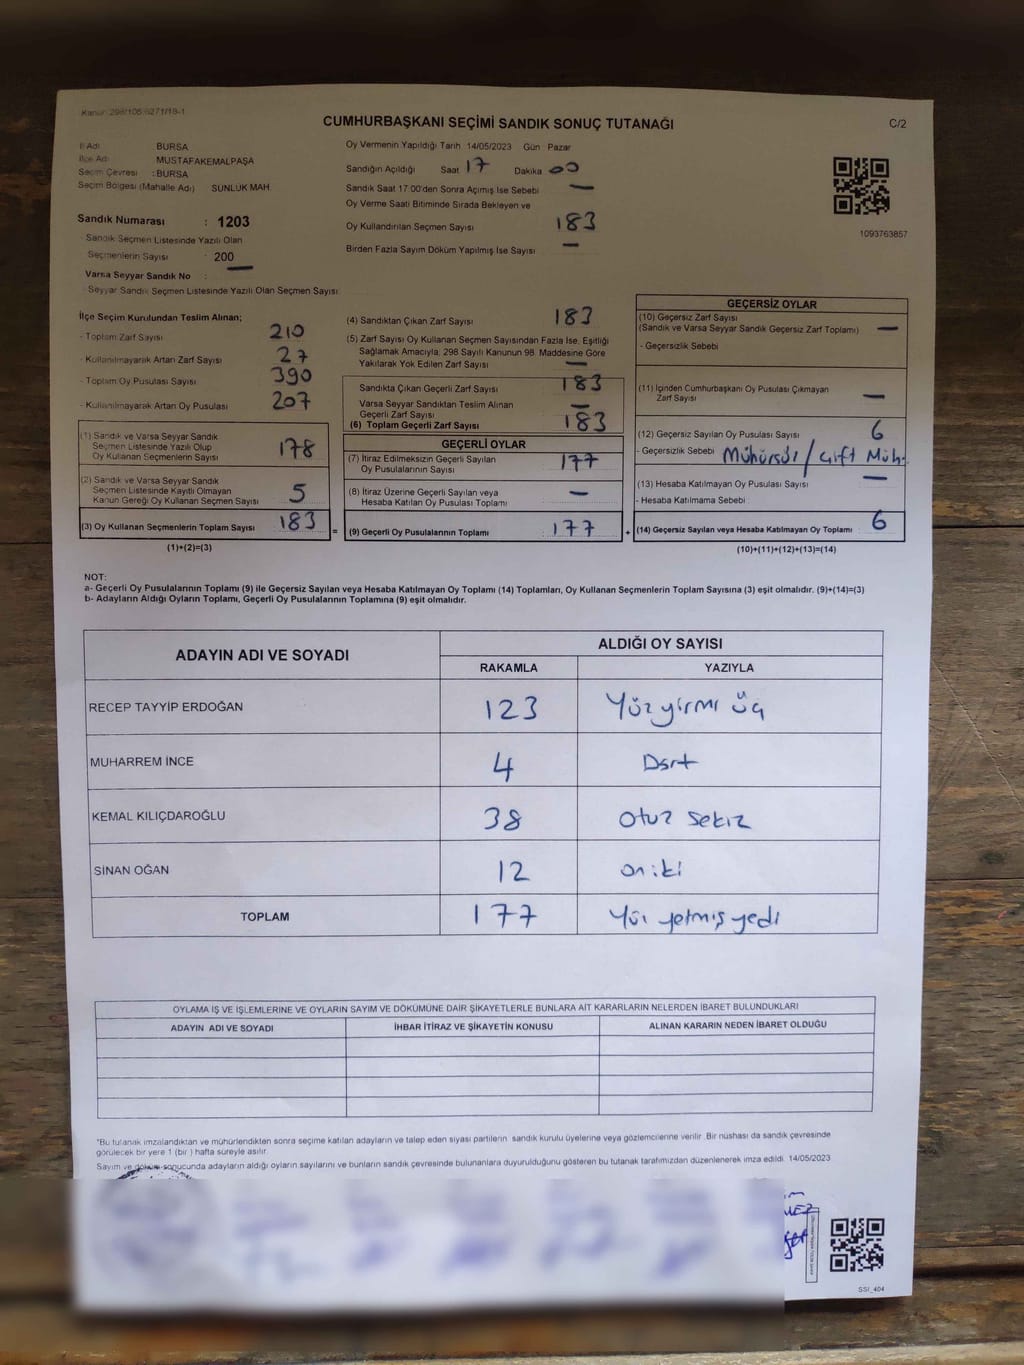 Kanun: 298/106 6271/18-1
CUMHURBAŞKANI SEÇİMİ SANDIK SONUÇ TUTANAĞI
C/2
İl Adı BURSA
İlçe Adı MUSTAFAKEMALPAŞA
Seçim Çevresi : BURSA
Seçim Bölgesi (Mahalle Adı) SÜNLÜK MAH
Sandık Numarası : 1203
Sandık Seçmen Listesinde Yazılı Olan
Seçmenlerin Sayısı 200
Varsa Seyyar Sandık No : —
- Seyyar Sandık Seçmen Listesinde Yazılı Olan Seçmen Sayısı
Oy Vermenin Yapıldığı Tarih 14/05/2023 Gün Pazar
Sandığın Açıldığı Saat 17 Dakika 00
Sandık Saat 17.00'den Sonra Açımış İse Sebebi —
Oy Verme Saati Bitiminde Sırada Bekleyen ve
Oy Kullandırılan Seçmen Sayısı 183
Birden Fazla Sayım Döküm Yapılmış İse Sayısı —
1093763857
İlçe Seçim Kurulundan Teslim Alınan;
- Toplam Zarf Sayısı 210
- Kullanılmayarak Artan Zarf Sayısı 27
- Toplam Oy Pusulası Sayısı 390
- Kullanılmayarak Artan Oy Pusulası 207
(1) Sandık ve Varsa Seyyar Sandık
Seçmen Listesinde Yazılı Olup
Oy Kullanan Seçmenlerin Sayısı 178
(2) Sandık ve Varsa Seyyar Sandık
Seçmen Listesinde Kayıtlı Olmayan
Kanun Gereği Oy Kullanan Seçmen Sayısı 5
(3) Oy Kullanan Seçmenlerin Toplam Sayısı 183 =
(1)+(2)=(3)
(4) Sandıktan Çıkan Zarf Sayısı 183
(5) Zarf Sayısı Oy Kullanan Seçmen Sayısından Fazla İse, Eşitliği
Sağlamak Amacıyla; 298 Sayılı Kanunun 98. Maddesine Göre
Yakılarak Yok Edilen Zarf Sayısı —
Sandıkta Çıkan Geçerli Zarf Sayısı 183
Varsa Seyyar Sandıktan Teslim Alınan
Geçerli Zarf Sayısı —
(6) Toplam Geçerli Zarf Sayısı 183
GEÇERLİ OYLAR
(7) İtiraz Edilmeksizin Geçerli Sayılan
Oy Pusulalarının Sayısı 177
(8) İtiraz Üzerine Geçerli Sayılan veya
Hesaba Katılan Oy Pusulaları Toplamı —
(9) Geçerli Oy Pusulalarının Toplamı : 177 +
GEÇERSİZ OYLAR
(10) Geçersiz Zarf Sayısı
(Sandık ve Varsa Seyyar Sandık Geçersiz Zarf Toplamı) —
- Geçersizlik Sebebi
(11) İçinden Cumhurbaşkanı Oy Pusulası Çıkmayan
Zarf Sayısı —
(12) Geçersiz Sayılan Oy Pusulası Sayısı 6
- Geçersizlik Sebebi Mühürsüz / Çift Müh.
(13) Hesaba Katılmayan Oy Pusulası Sayısı —
- Hesaba Katılmama Sebebi
(14) Geçersiz Sayılan veya Hesaba Katılmayan Oy Toplamı : 6
(10)+(11)+(12)+(13)=(14)
NOT:
a- Geçerli Oy Pusulalarının Toplamı (9) ile Geçersiz Sayılan veya Hesaba Katılmayan Oy Toplamı (14) Toplamları, Oy Kullanan Seçmenlerin Toplam Sayısına (3) eşit olmalıdır. (9)+(14)=(3)
b- Adayların Aldığı Oyların Toplamı, Geçerli Oy Pusulalarının Toplamına (9) eşit olmalıdır.
ADAYIN ADI VE SOYADI ALDIĞI OY SAYISI
RAKAMLA YAZIYLA
RECEP TAYYİP ERDOĞAN 123 Yüzyirmi üç
MUHARREM İNCE 4 Dört
KEMAL KILIÇDAROĞLU 38 otuz sekiz
SİNAN OĞAN 12 on iki
TOPLAM 177 Yüz yetmiş yedi
OYLAMA İŞ VE İŞLEMLERİNE VE OYLARIN SAYIM VE DÖKÜMÜNE DAİR ŞİKAYETLERLE BUNLARA AİT KARARLARIN NELERDEN İBARET BULUNDUKLARI
ADAYIN ADI VE SOYADI İHBAR İTİRAZ VE ŞİKAYETİN KONUSU ALINAN KARARIN NEDEN İBARET OLDUĞU
*Bu tutanak imzalandıktan ve mühürlendikten sonra seçime katılan adayların ve talep eden siyasi partilerin sandık kurulu üyelerine veya gözlemcilerine verilir. Bir nüshası da sandık çevresinde
görülecek bir yere 1 (bir) hafta süreyle asılır.
Sayım ve döküm sonucunda adayların aldığı oyların sayılarını ve bunların sandık çevresinde bulunanlara duyurulduğunu gösteren bu tutanak tarafımızdan düzenlenerek imza edildi. 14/05/2023
SSI_404